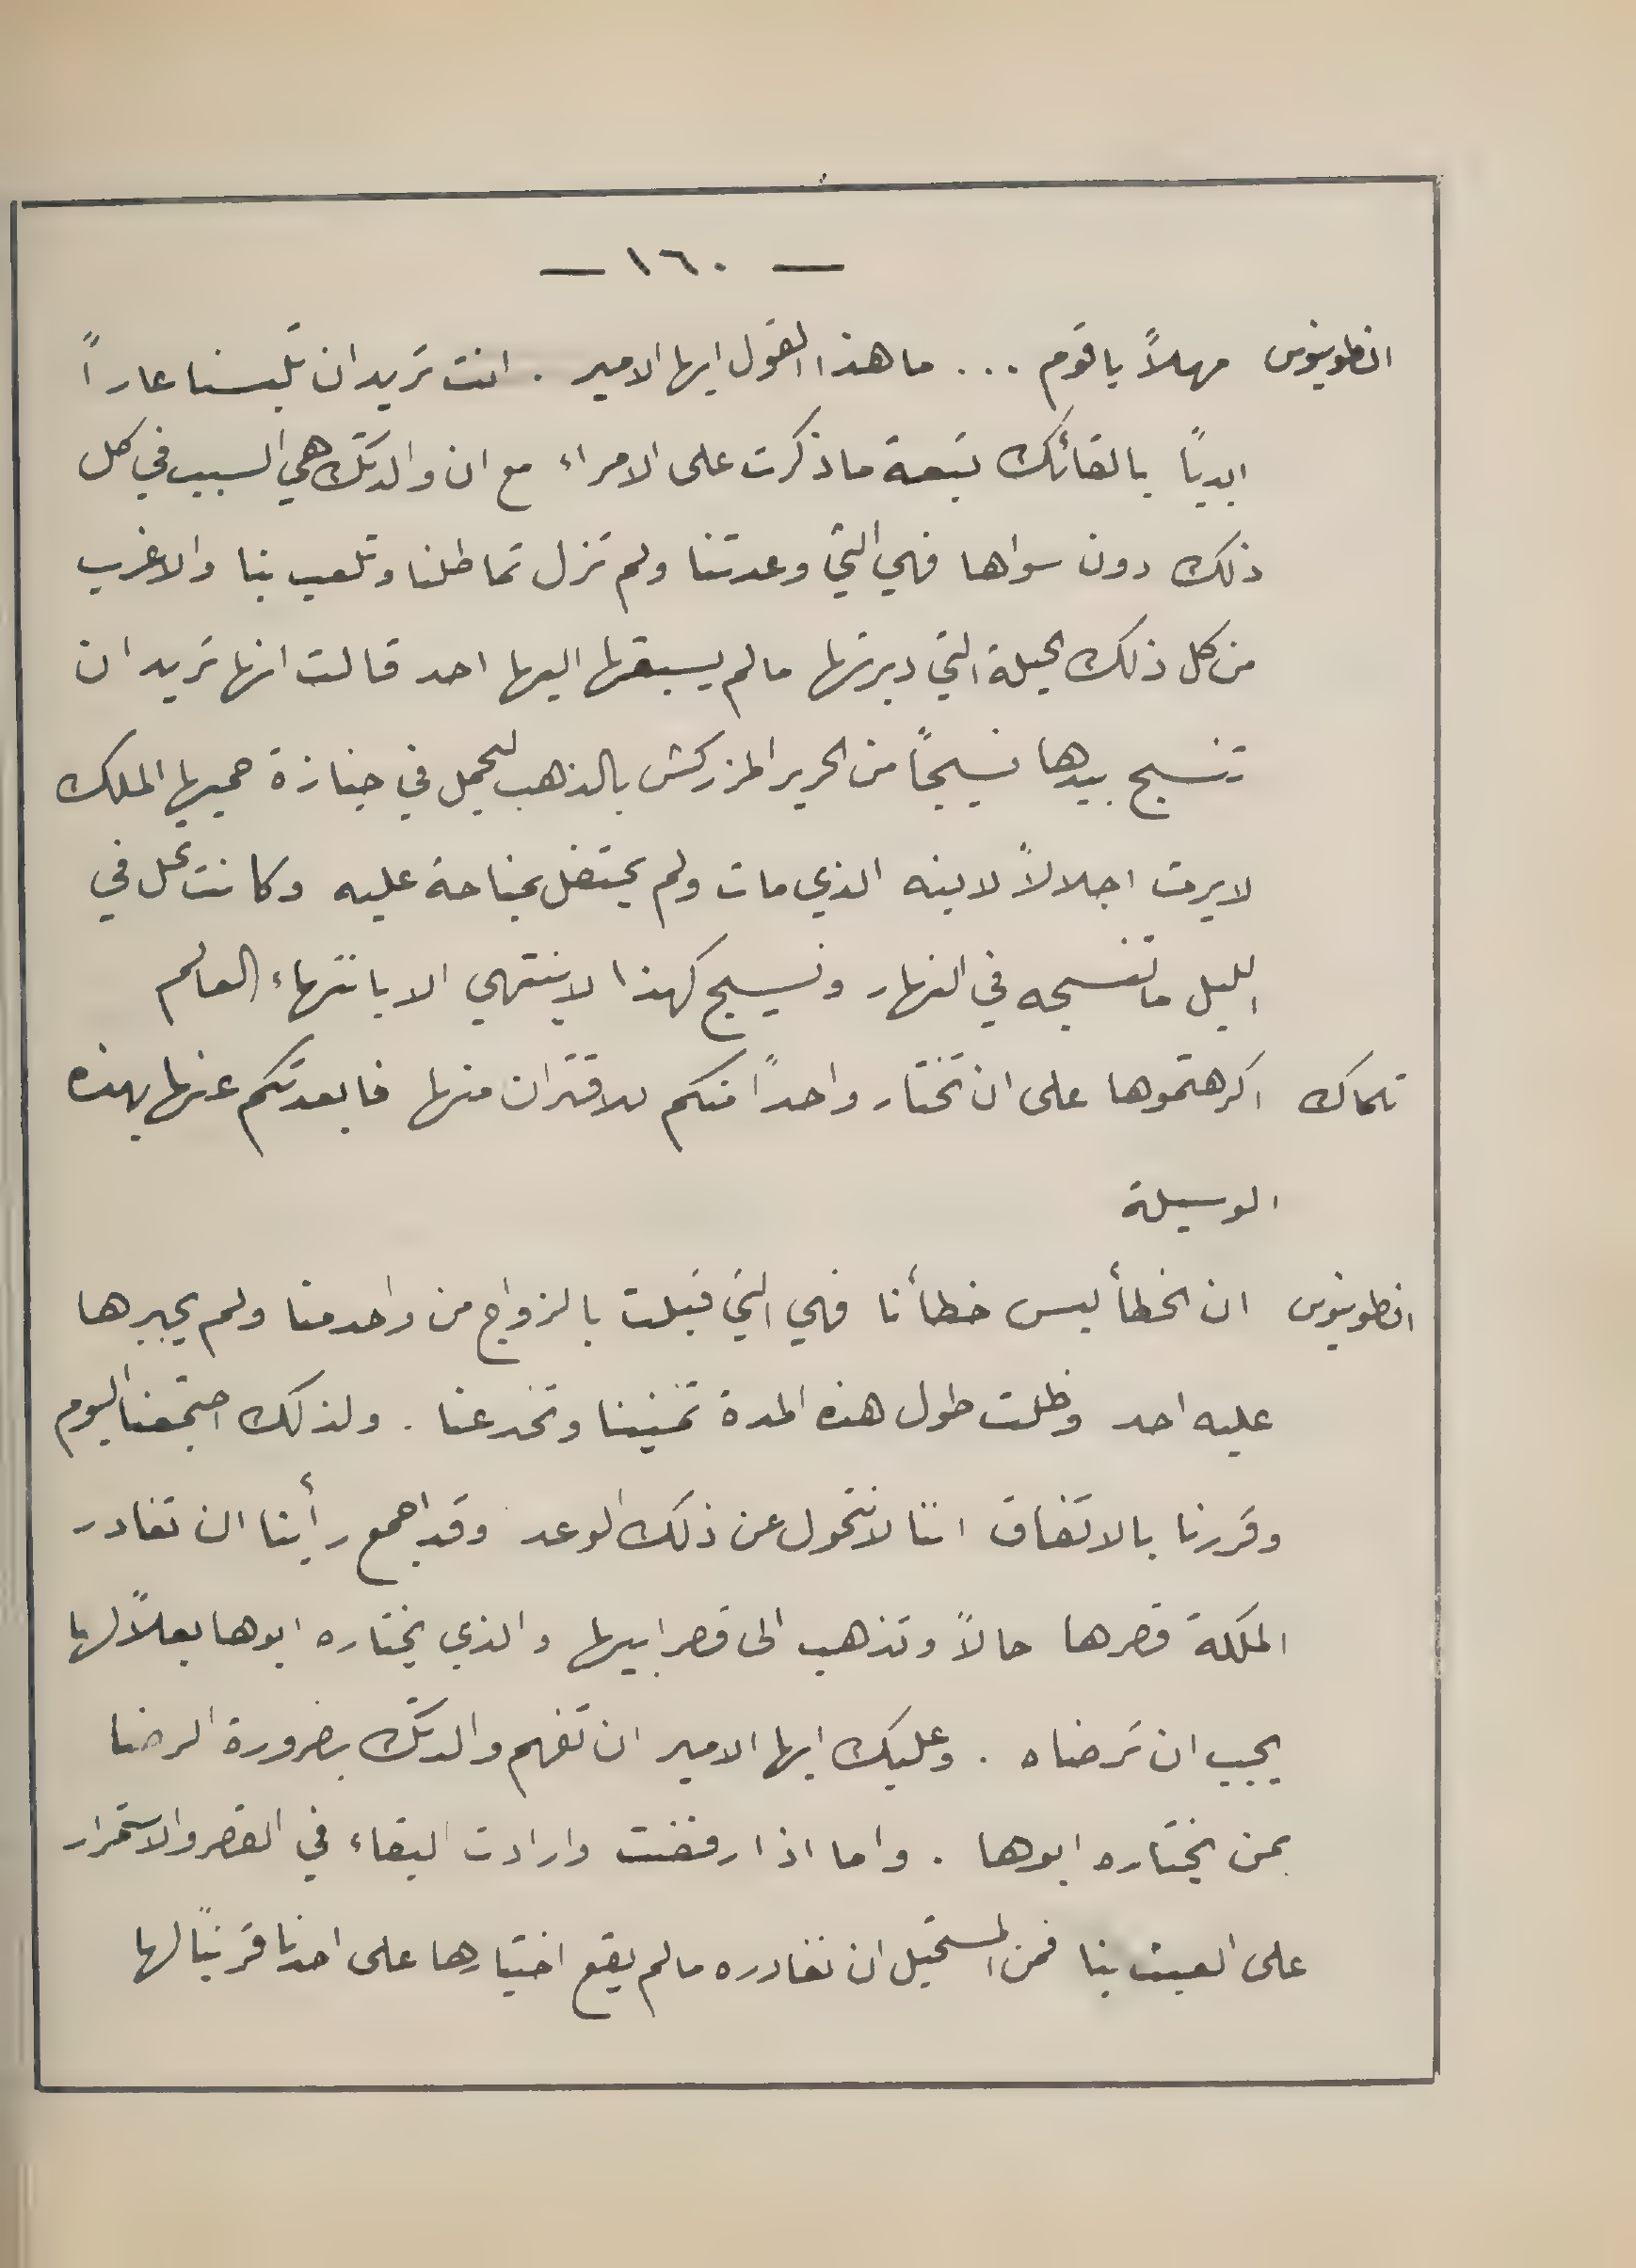 — ١٦٠ —
انطونيوس مهلاً ياقوم ... ما هذا القول ايها الامير . انت تريد ان تلبسنا عاراً
ابدياً بالقائك تبعة ما ذكرت على الامراء مع ان والدتك هي السبب في كل
ذلك دون سواها فهي التي وعدتنا ولم تزل تماطلنا وتلعب بنا والاغرب
من كل ذلك الحيلة التي دبرتها مالم يسبقها اليها احد قالت انها تريد ان
تنسج بيدها نسيجاً من الحرير المزركش بالذهب ليحمل في جنازة حميها الملك
لايرت اجلالاً لابنه الذي مات ولم يحتفل بمناحة عليه وكانت تحل في
الليل ما تنسجه في النهار ونسيج كهذا لا ينتهي الا بانتهاء العالم
تلماك اكرهتموها على ان تختار واحداً منكم للاقتران منها فابعدتكم عنها بهذه
الوسيلة
انطونيوس ان الخطأ ليس خطأنا فهي التي قبلت بالزواج من واحد منا ولم يجبرها
عليه احد وظلت طول هذه المدة تمنينا وتخدعنا . ولذلك اجتمعنا اليوم
وقررنا بالاتفاق اننا لا نتحول عن ذلك الوعد وقد اجمع رأينا ان تغادر
الملكة قصرها حالاً وتذهب الى قصر ابيها والذي يختاره ابوها بعلاً لها
يجب ان ترضاه . وعليك ايها الامير ان تفهم والدتك بضرورة الرضا
بمن يختاره ابوها . واما اذا رفضت وارادت البقاء في القصر والاستمرار
على العبث بنا فمن المستحيل ان نغادره مالم يقع اختيارها على احدنا قريناً لها